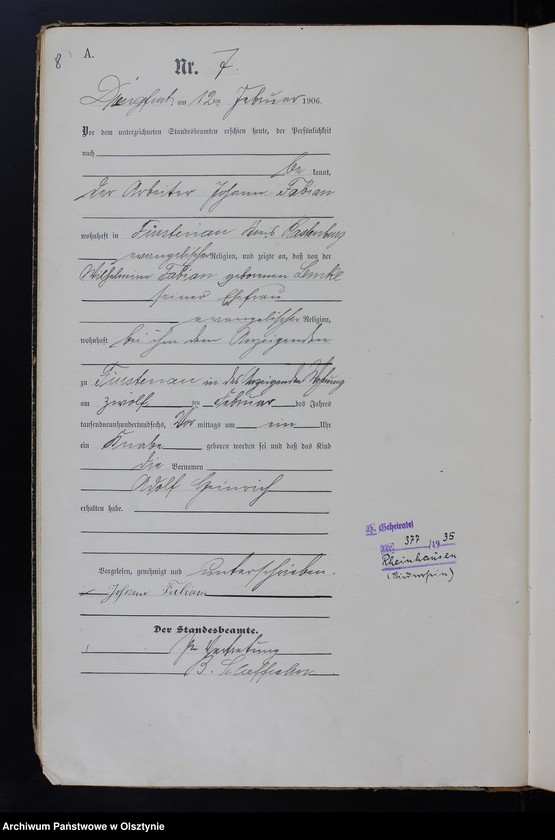 8
A.
Nr. 7.
am 12ten Februar 1906.
Vor dem unterzeichneten Standesbeamten erschien heute, der Persönlichkeit
nach
be kannt,
der Arbeiter Johann Fabian
wohnhaft in Fürstenau Kreis Rastenburg
evangelischer Religion, und zeigte an, daß von der
Wilhelmine Fabian geborenen Lemke
seiner Ehefrau
evangelischer Religion,
wohnhaft bei ihm dem Anzeigenden
zu Fürstenau in des Anzeigenden Wohnung
am zwölf ten Februar des Jahres
tausendneunhundertundsechs, Vor mittags um ein Uhr
ein Knabe geboren worden sei und daß das Kind
die Vornamen
Adolf Heinrich
erhalten habe.
Vorgelesen, genehmigt und unterschrieben.
Johann Fabian
Der Standesbeamte.
In Vertretung
B.
Geheiratet
377 /1935
Rheinhausen
(Niederrhein)
Archiwum Państwowe w Olsztynie